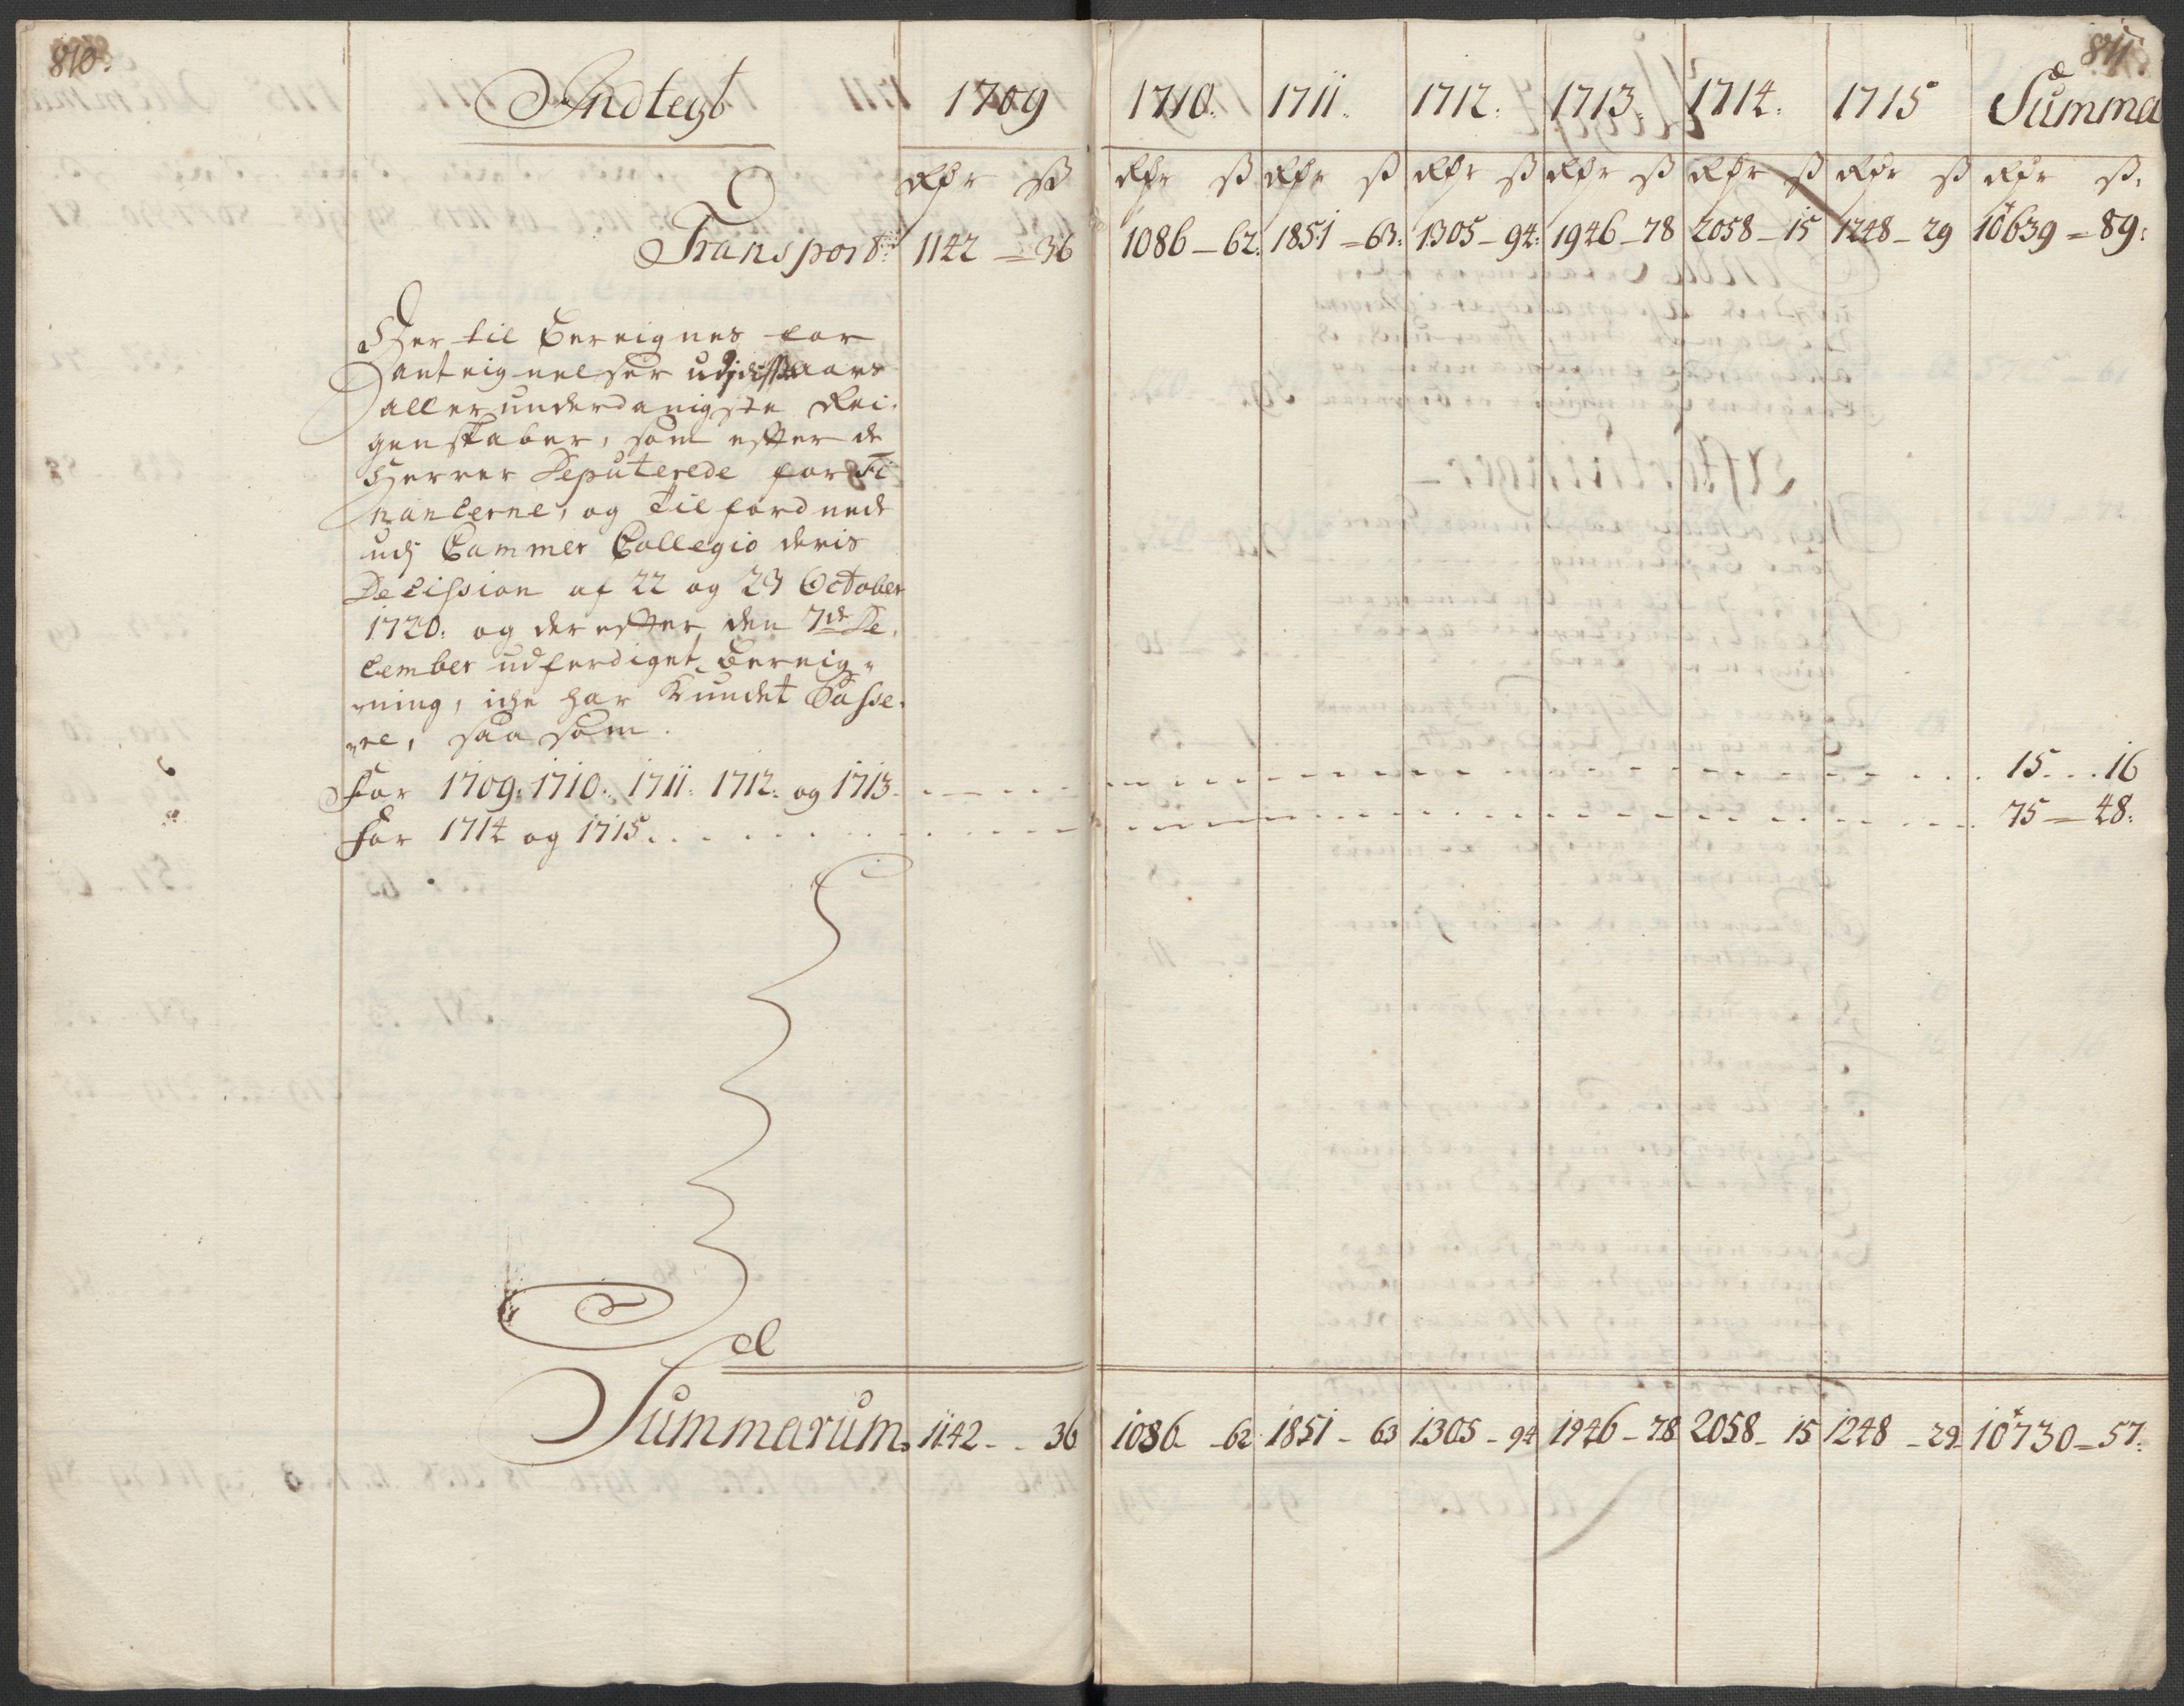 810. 811.
Indtegt 1709 1710. 1711. 1712. 1713. 1714. 1715 Summa
Rdr ß Rdr ß Rdr ß Rdr ß Rdr ß Rdr ß Rdr ß Rdr ß.
Transport 1142 = 36 1086 - 62. 1851 = 63. 1305 - 94. 1946 - 78 2058 - 15 1248 - 29 10639 = 89:
Her til bereignes for
anteignelser udj disse aars
allerunderdanigste Rei-
genskaber, som efter de
Herrer Deputerede for Fi
nancerne, og Tilfordnede
udj Cammer Collegio deris
Decission af 22 og 29 October
1720. og der efter den 7de De-
cember udferdiget bereig-
ning, iche har Kundet Passe-
re, saa som.
For 1709. 1710. 1711. 1712. og 1713 15 . . . 16
For 1714 og 1715. 75 = 48:
Summarum. 1142 - - 36 1086 - 62. 1851 - 63 1305 - 94 1946 - 78 2058 - 15 1248 - 29 10730 = 57: